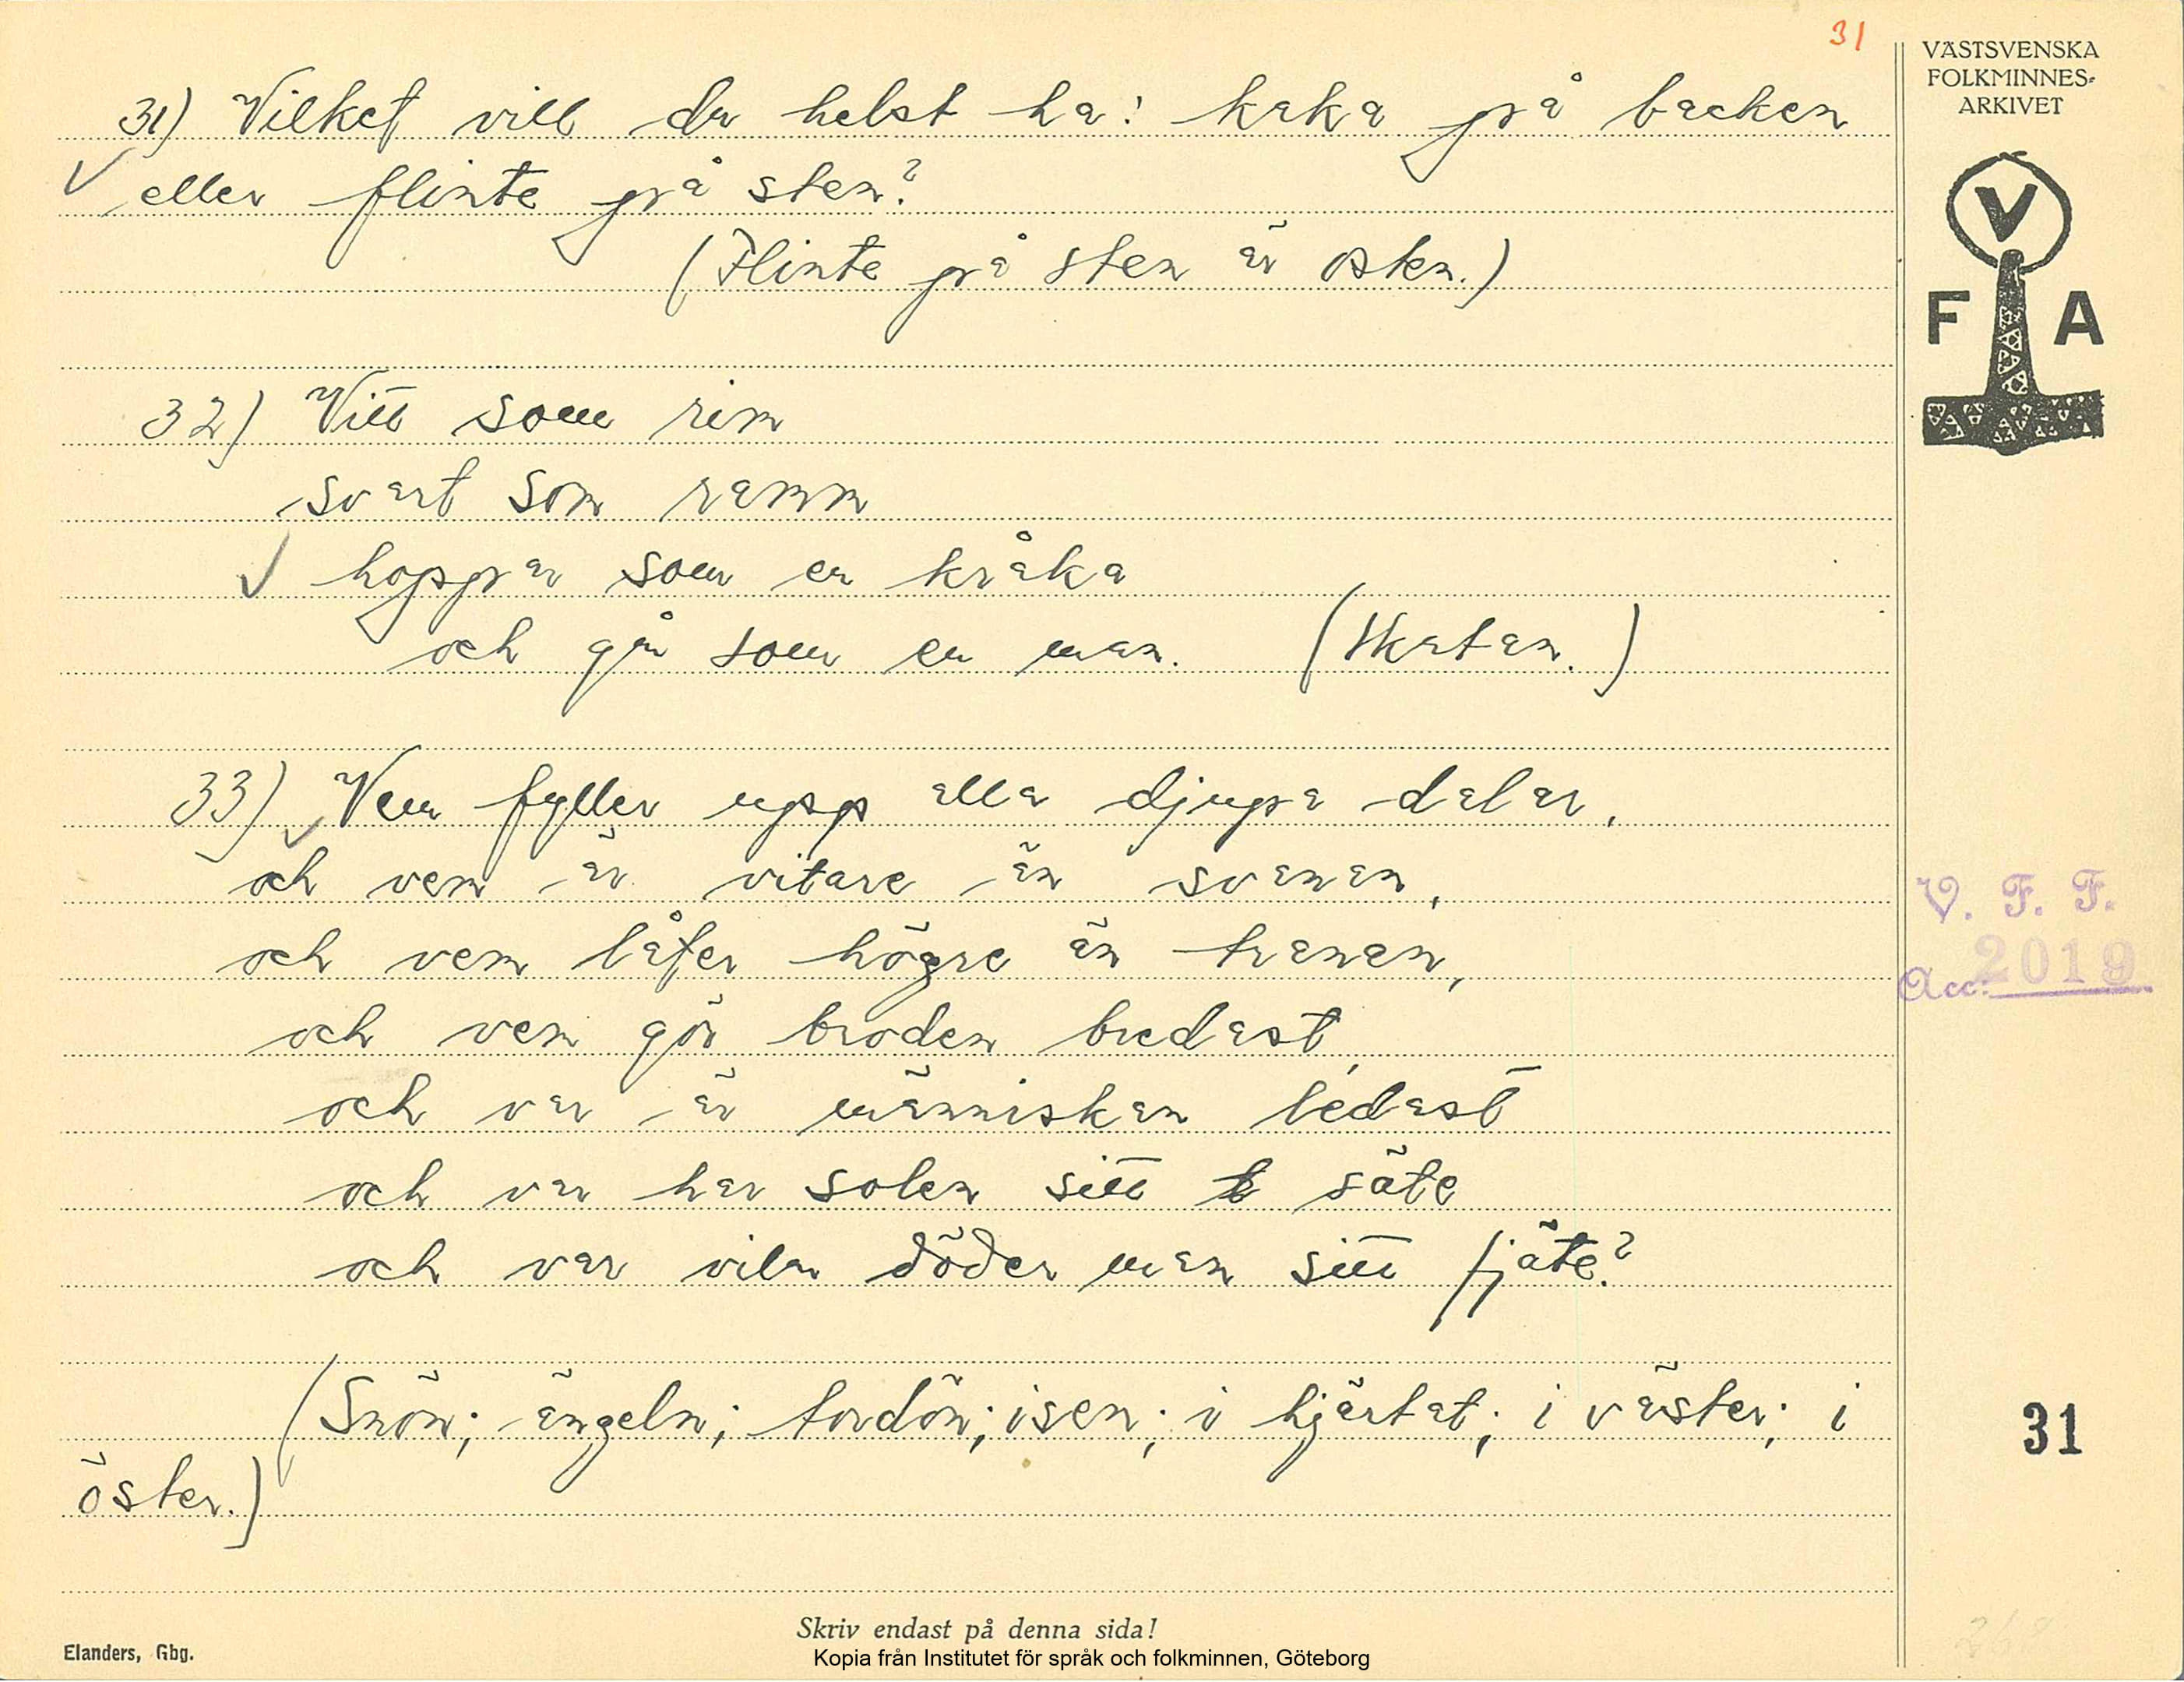 31
31) Vilket vill du helst ha: kaka på backen
eller flinte på sten?
(Flinte på sten är osten.)
32) Vitt som rim
svart som ramm
hoppar som en kråka
och går som en man. (Skatan.)
33) Vem fyller upp alla djupa dalar,
och vem är vitare än svanen,
och vem låter högre än tranan,
och vem gör broden bredast,
och var är människan ledast
och var har solen sitt säte
och var vilar döder man sitt fjäte?
(Snön; ängeln; tordön; isen; i hjärtat; i väster; i
öster.)
VÄSTSVENSKA
FOLKMINNES-
ARKIVET
V
F A
V. F. F.
Acc: 2019
31
Skriv endast på denna sida!
Elanders, Gbg.
Kopia från Institutet för språk och folkminnen, Göteborg